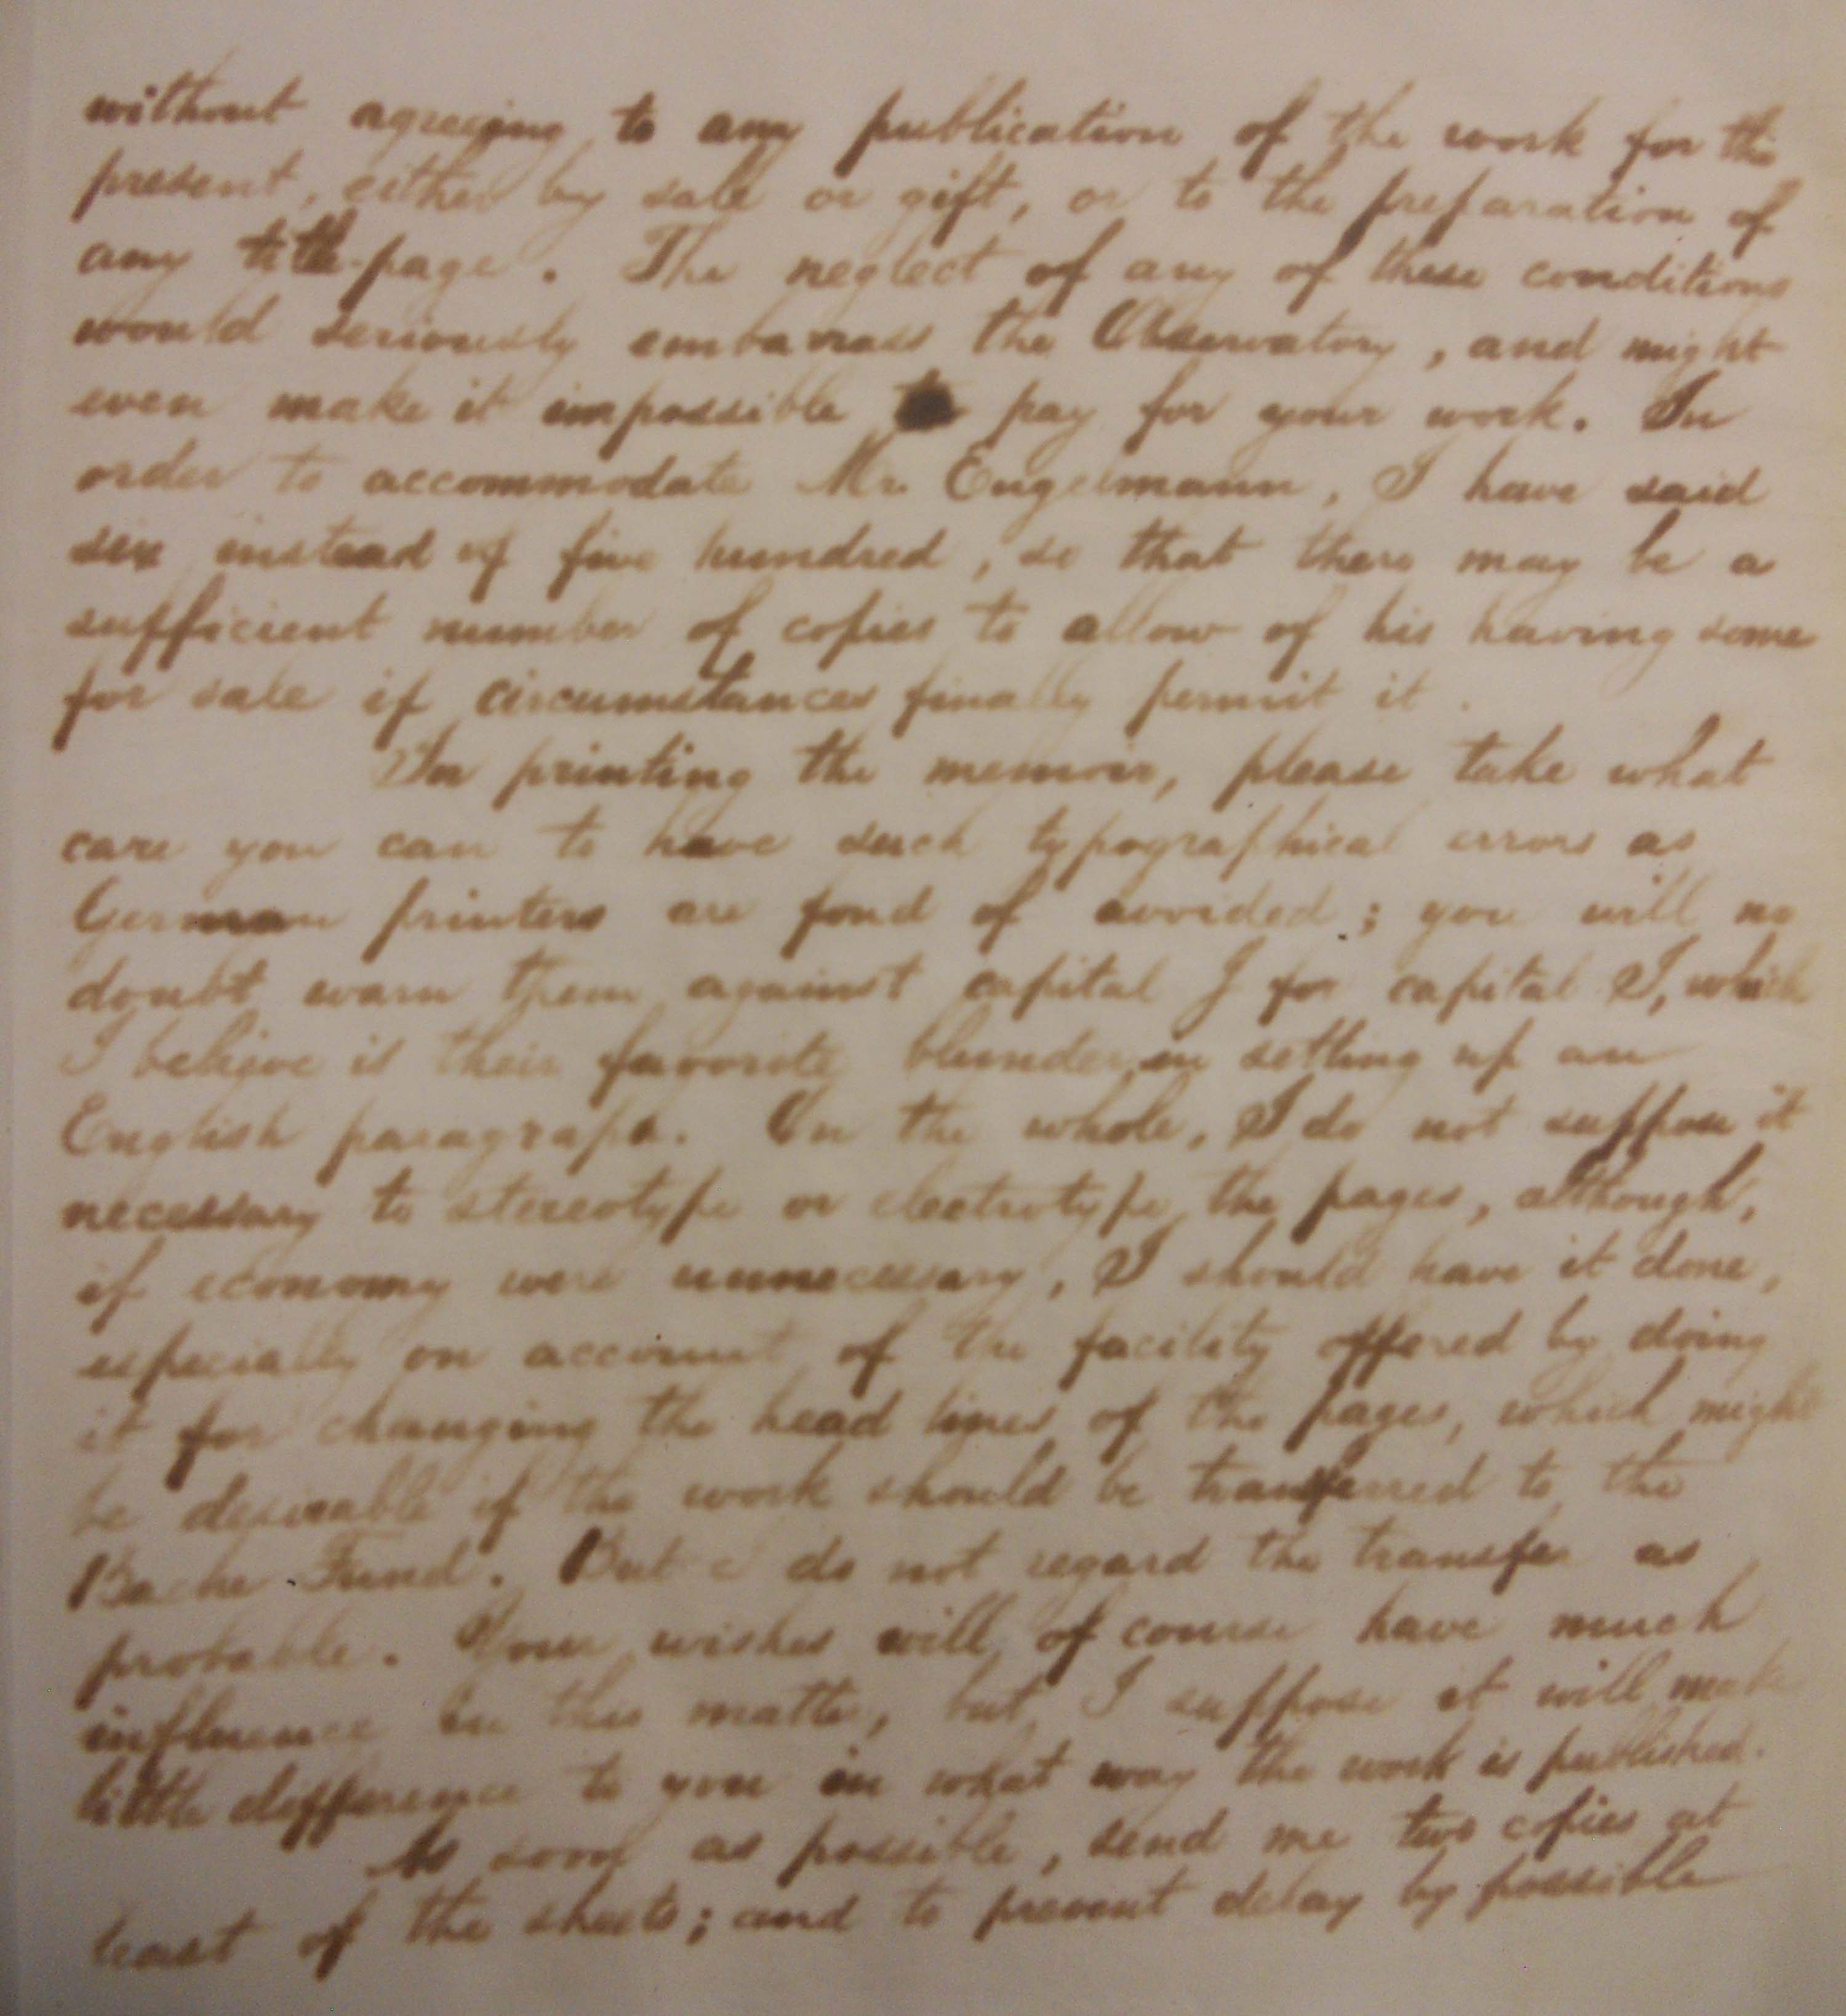 without agreeing to any publication of the work for the
present, either by sale or gift, or to the preparation of
any title-page. The neglect of any of these conditions
would seriously embarrass the Observatory, and might
even make it impossible to pay for your work. In
order to accommodate Mr. Engelmann, I have said
six instead of five hundred, so that there may be a
sufficient number of copies to allow of his having some
for sale if circumstances finally permit it.
In printing the memoir, please take what
care you can to have such typographical errors as
German printers are fond of avoided; you will no
doubt warn them against capital J for capital I, which
I believe is their favorite blunder in setting up an
English paragraph. On the whole, I do not suppose it
necessary to stereotype or electrotype the pages, although,
if economy were unnecessary, I should have it done,
especially on account of the facility offered by doing
it for changing the head lines of the pages, which might
be desirable if the work should be transferred to the
Bache Fund. But I do not regard the transfer as
probable. Your wishes will of course have much
influence in this matter, but I suppose it will make
little difference to you in what way the work is published.
As soon as possible, send me two copies at
least of the sheets; and to prevent delay by possible